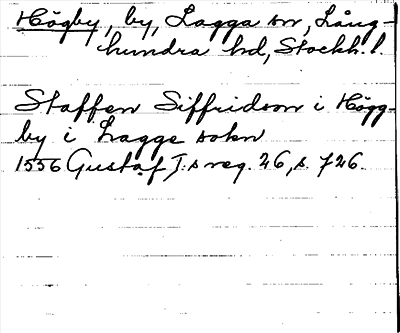 Högby, by, Lagga sn, Lång-
hundra hd, Stockh. l.
Staffen Siffridson i Högg-
by i Lagge sokn
1556 Gustaf I:s reg. 26, s. 726.